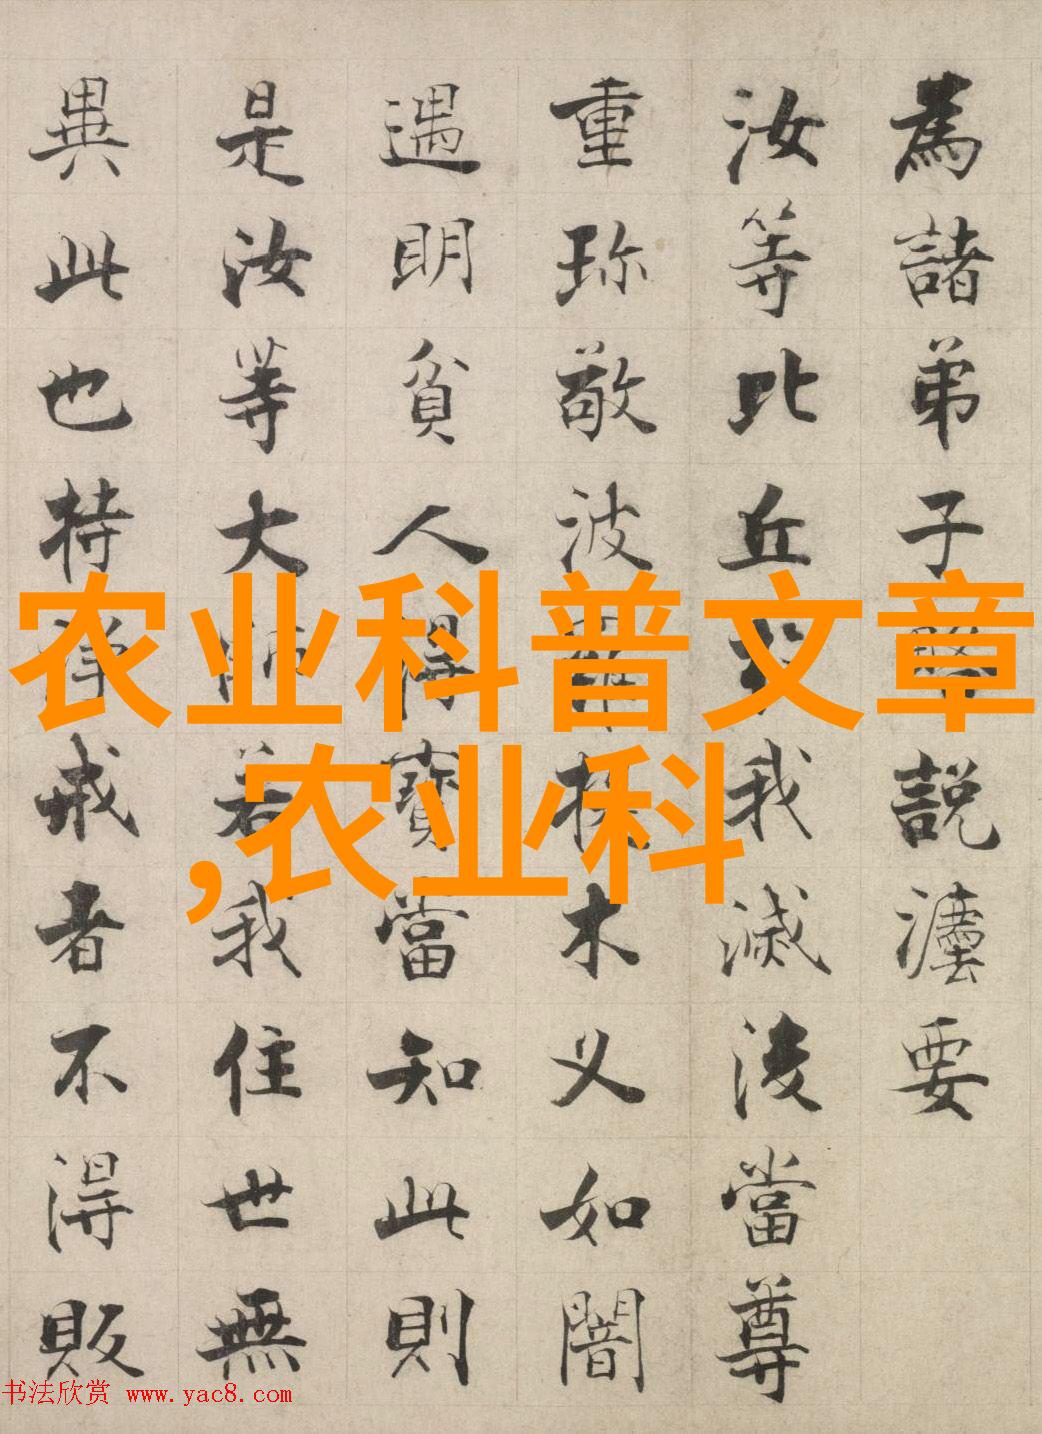 為諸弟子説灋要
汝等比丘我滅後當尊
重珎敬波提木义如闇
遇明貧人得寶當知此則
是汝等大師若我住世無
異此也持淨戒者不得販
农业科普文章
,农业科
书法欣赏 www.yac8.com